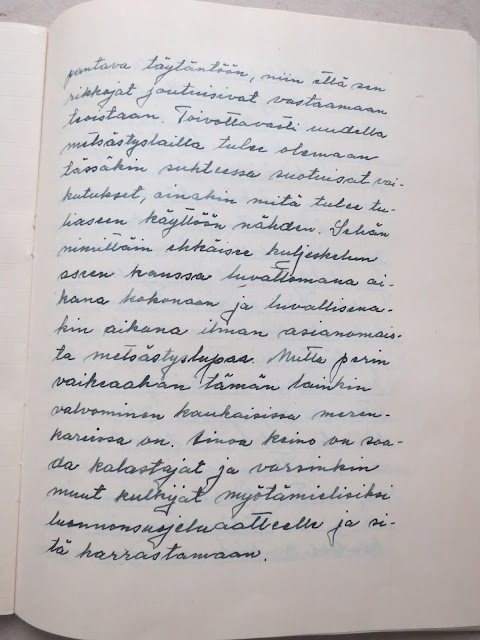 pantava täytäntöön, niin että sen
rikkojat joutuisivat vastaamaan
teoistaan. Toivottavasti uudella
metsästyslailla tulee olemaan
tässäkin suhteessa suotuisat vai-
kutukset, ainakin mitä tulee tu-
liaseen käyttöön nähden. Sehän
nimittäin ehkäisee kuljeskelun
aseen kanssa luvattomana ai-
kana kokonaan ja luvallisena-
kin aikana ilman asianomais-
ta metsästyslupaa. Mutta perin
vaikeaahan tämän lainkin
valvominen kaukaisissa meren-
kariissa on. Ainoa keino on saa-
da kalastajat ja varsinkin
muut kulkijat myötämielisiksi
luonnonsuojeluaatteelle ja si-
tä harrastamaan.